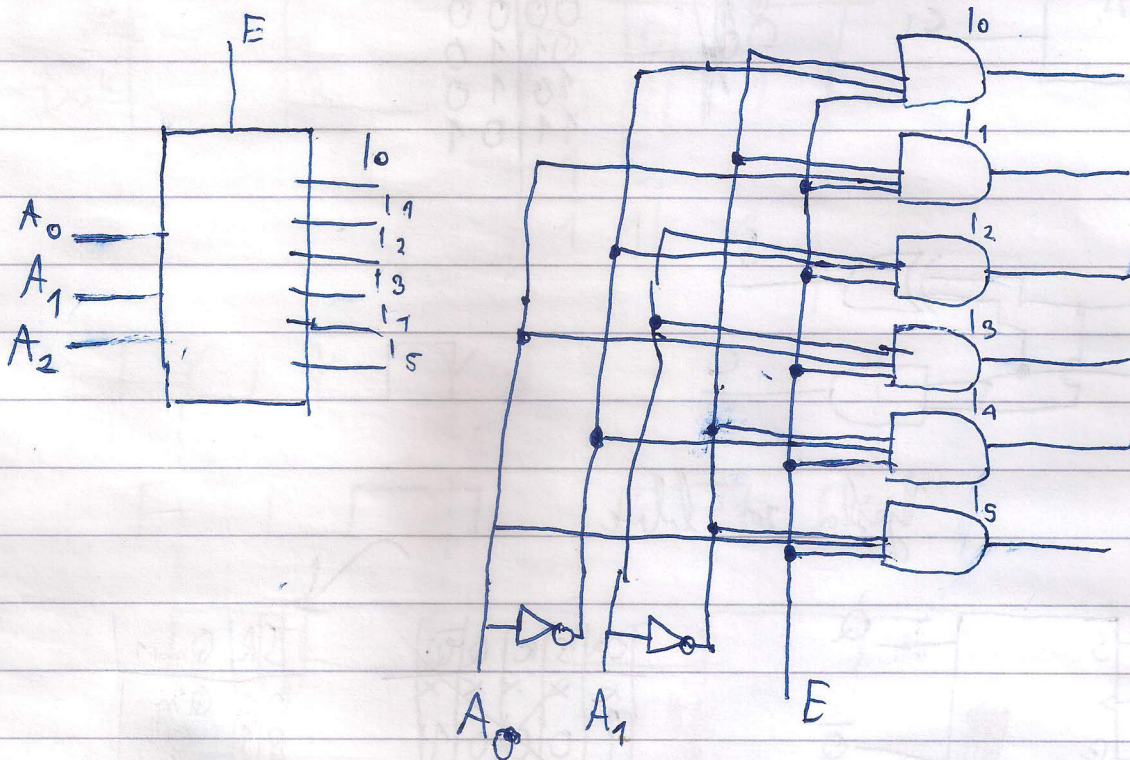 E
I0
I1
I2
I3
I1
I5
A0
A1
A2
I0
I1
I2
I3
I4
I5
A0
A1
E